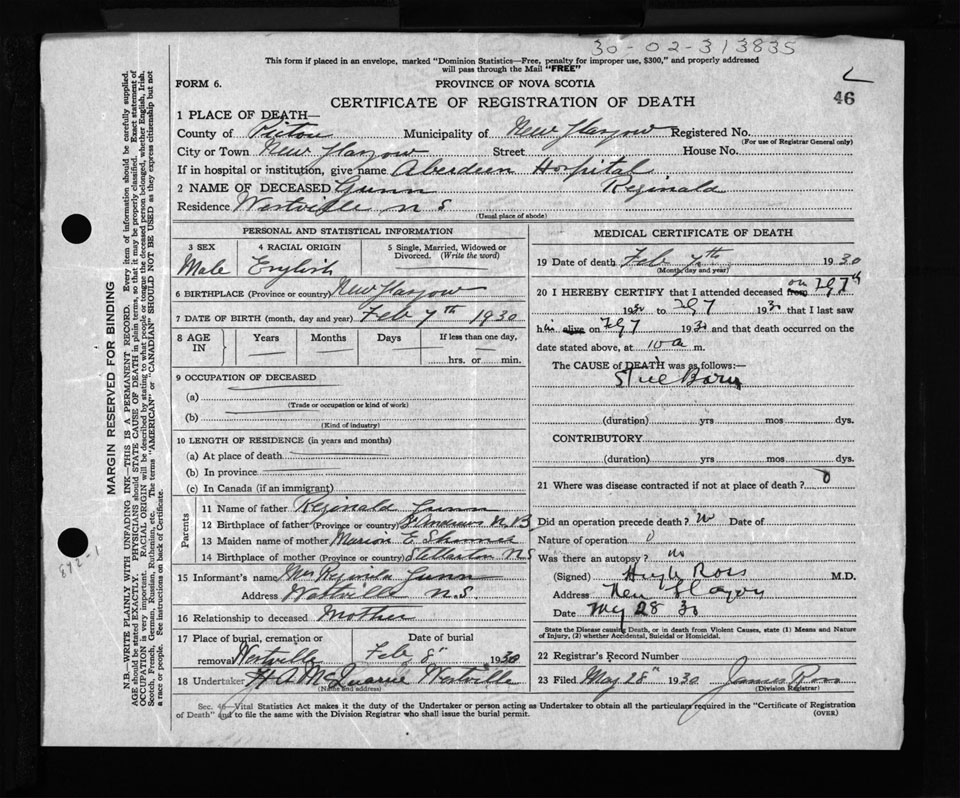 30-02-313835
This form if placed in an envelope, marked "Dominion Statistics—Free, penalty for improper use, $300," and properly addressed
will pass through the Mail "FREE"
FORM 6. PROVINCE OF NOVA SCOTIA
46
CERTIFICATE OF REGISTRATION OF DEATH
1 PLACE OF DEATH—
County of Pictou Municipality of New Glasgow Registered No.
(For use of Registrar General only)
City or Town New Glasgow Street House No.
If in hospital or institution, give name Aberdeen Hospital
2 NAME OF DECEASED Gunn Reginald
Residence Westville N S
(Usual place of abode)
PERSONAL AND STATISTICAL INFORMATION
3 SEX 4 RACIAL ORIGIN 5 Single, Married, Widowed or Divorced. (Write the word)
Male English
6 BIRTHPLACE (Province or country) New Glasgow
7 DATE OF BIRTH (month, day and year) Feb 7th 1930
8 AGE IN Years Months Days If less than one day,
hrs. or min.
9 OCCUPATION OF DECEASED
(a)
(Trade or occupation or kind of work)
(b)
(Kind of industry)
10 LENGTH OF RESIDENCE (in years and months)
(a) At place of death
(b) In province
(c) In Canada (if an immigrant)
Parents
11 Name of father Reginald Gunn
12 Birthplace of father (Province or country) St Andrews N.B
13 Maiden name of mother Marion E
14 Birthplace of mother (Province or country) Stellarton N S
15 Informant's name Mrs Gunn
Address Westville N.S.
16 Relationship to deceased Mother
17 Place of burial, cremation or removal Westville Date of burial Feb 8" 1930
18 Undertaker H A McQuarrie Westville
(Name and address)
MEDICAL CERTIFICATE OF DEATH
19 Date of death Feb 7th 1930
(Month, day and year)
20 I HEREBY CERTIFY that I attended deceased from on 7th
1930 to 7 1930 that I last saw
him alive on 7 1930 and that death occurred on the
date stated above, at 10 a m.
The CAUSE of DEATH was as follows:—
Still Born
(duration) yrs mos dys.
CONTRIBUTORY
(duration) yrs mos dys.
21 Where was disease contracted if not at place of death? 0
Did an operation precede death? no Date of
Nature of operation 0
Was there an autopsy? no
(Signed) Hugh Ross M.D.
Address New Glasgow
Date May 28 30
State the Disease causing Death, or in death from Violent Causes, state (1) Means and Nature
of Injury, (2) whether Accidental, Suicidal or Homicidal.
22 Registrar's Record Number
23 Filed May 28" 1930 James Ross
(Division Registrar)
Sec. 46—Vital Statistics Act makes it the duty of the Undertaker or person acting as Undertaker to obtain all the particulars required in the "Certificate of Registration
of Death" and to file the same with the Division Registrar who shall issue the burial permit. (OVER)
MARGIN RESERVED FOR BINDING
N.B.—WRITE PLAINLY WITH UNFADING INK—THIS IS A PERMANENT RECORD. Every item of information should be carefully supplied.
AGE should be stated EXACTLY. PHYSICIANS should STATE CAUSE OF DEATH in plain terms, so that it may be properly classified. Exact statement of
OCCUPATION is very important. RACIAL ORIGIN will be described by stating to what people or tongue the deceased person belonged, whether English, Irish,
Scotch, French, German, Russian, Ruthenian, etc. The terms "AMERICAN" or "CANADIAN" SHOULD NOT BE USED as they express citizenship but not
a race or people. See instructions on back of Certificate.